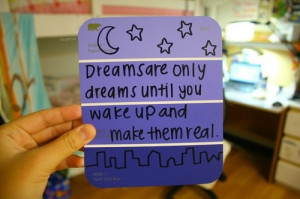 Dreams are only
dreams until you
wake up and
make them real.